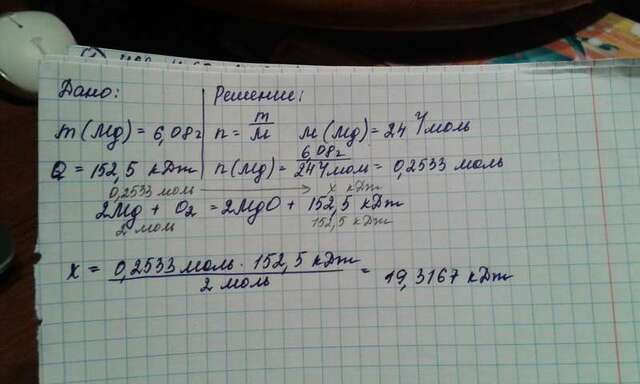 Дано: Решение:
m(Mg) = 6,08г n = m/M M(Mg) = 24 г/моль
Q = 152,5 кДж n(Mg) = 6 08г/24 г/моль = 0,2533 моль
0,2533 моль x кДж
2Mg + O₂ = 2MgO + 152,5 кДж
2 моль 152,5 кДж
x = 0,2533 моль · 152,5 кДж / 2 моль = 19,3167 кДж